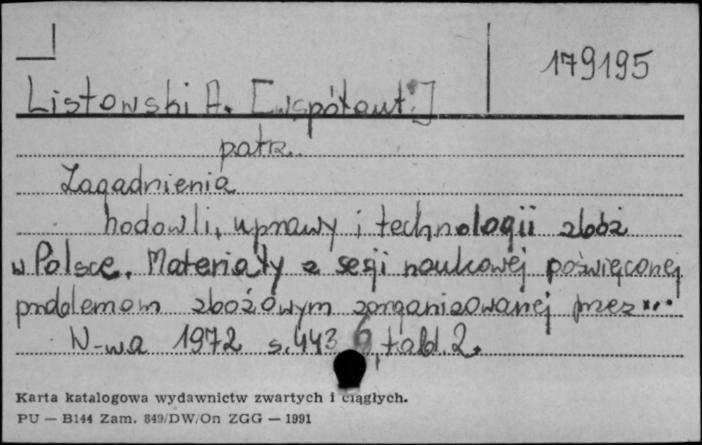 179195
Listowski A. [współaut.]
patrz.
Zagadnienia
hodowli, uprawy i technologii zbóż
w Polsce. Materiały z sesji naukowej poświęconej
problemom zbożowym zorganizowanej przez...
W-wa 1972 s. 443 tabl. 2.
Karta katalogowa wydawnictw zwartych i ciągłych.
PU — B144 Zam. 849/DW/On ZGG — 1991